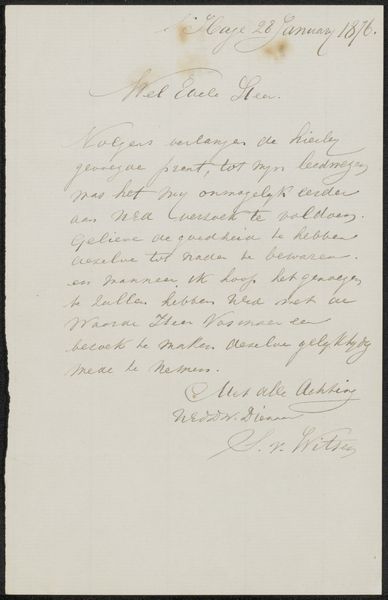 's Hage 28 January 1876.
Wel Edele Heer.
Volgens verlangen de hierby
gevoegde prent, tot myn leedwezen
was het my onmogelyk eerder
aan UEd verzoek te voldoen.
Gelieve de goedheid te hebben
dezelve tot nader te bewaren.
en manneer ik hoop het genoegen
te zullen hebben UEd met de
Waarde Heer Vosmaer een
bezoek te maken dezelve gelyktydig
mede te nemen.
Met alle Achting
UEd Dw. Dienaar
S. v. Witsen